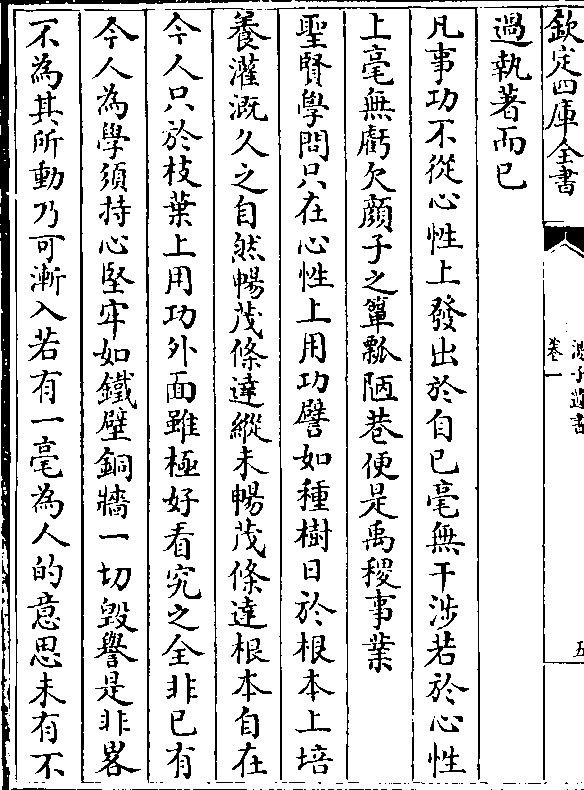 欽定四庫全書
卷一
五
過執著而已
凡事功不從心性上發出於自已毫無干涉若於心性
上毫無虧欠顔子之簞瓢陋巷便是禹稷事業
聖賢學問只在心性上用功譬如種樹日於根本上培
養灌溉久之自然暢茂條達縱未暢茂條達根本自在
今人只於枝葉上用功外面雖極好看究之全非已有
今人為學須持心堅牢如鐵壁銅牆一切毀譽是非畧
不為其所動乃可漸入若有一毫為人的意思未有不